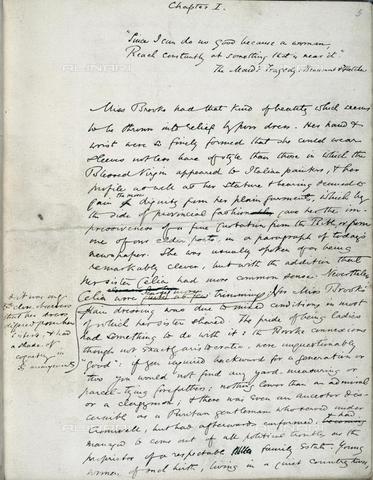 Chapter I.
5
"Since I can do no good because a woman,
Reach constantly at something that is near it."
The Maid's Tragedy: Beaumont & Fletcher
Miss Brooke had that kind of beauty which seems
to be thrown into relief by poor dress. Her hand &
wrist were so finely formed that she could wear
sleeves not less bare of style than those in which the
Blessed Virgin appeared to Italian painters, & her
profile as well as her stature & bearing seemed to
gain the more dignity from her plain garments, which by
the side of provincial fashion gave her the im-
pressiveness of a fine quotation from the Bible, or from
one of our elder poets, in a paragraph of today's
newspaper. She was usually spoken of as being
remarkably clever, but with the addition that
her sister Celia had more common sense. Nevertheless
Celia wore trimmings
for Miss Brooke's
plain dressing was due to mixed conditions, in most
of which her sister shared. The pride of being ladies
had something to do with it: the Brooke connexions
though not exactly aristocratic, were unquestionably
"good": if you inquired backward for a generation or
two you would not find any yard-measuring or
parcel-tying forefathers: nothing lower than an admiral
or a clergyman; & there was even an ancestor dis-
cernible as a Puritan gentleman who served under
Cromwell, but had afterwards conformed, & had
managed to come out of all political troubles as the
proprietor of a respectable family estate. Young
women of such birth, living in a quiet country town,
& it was only
to close observers
that her dress
differed from her
sister's, & had
a shade of
coquetry in
its arrangements
ALINARI